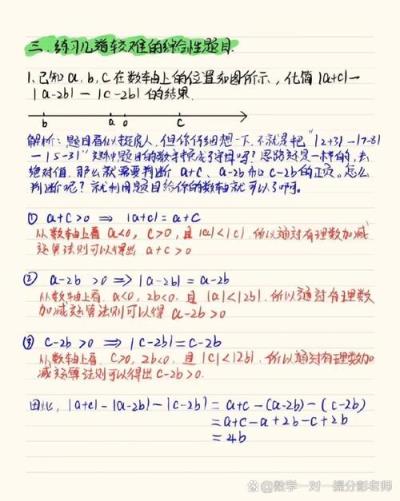 三、练习几道较难的综合性题目.
1.已知a.b.c在数轴上的位置如图所示,化简|a+c|-
|a-2b|-|c-2b|的结果.
b a 0 c
解析:题目看似挺唬人,但你仔细想一下,不就是把"|2+3|-|7-8|
-|5-3|"这种题目的数字换成了字母吗?思路还是一样的,去
绝对值,那么就需要判断a+c、a-2b和c-2b的正负。怎么
判断呢?就利用题目给你的数轴就可以了啊。
① a+c>0 ⇒ |a+c|=a+c
从数轴上看a<0,c>0,且|a|<|c|.所以通过有理数加减
运算法则可以得出a+c>0
② a-2b>0 ⇒ |a-2b|=a-2b
从数轴上看.a<0,2b<0.且|a|<|2b|.所以通过有理数
加减运算法则可以得a-2b>0
③ c-2b>0 ⇒ |c-2b|=c-2b
从数轴上看.c>0,2b<0.且|c|<|2b|.所以通过有理数加
减运算法则可以得出c-2b>0.
因此,|a+c|-|a-2b|-|c-2b|=a+c-(a-2b)-(c-2b)
=a+c-a+2b-c+2b
=4b
数学一对一振分彭老师